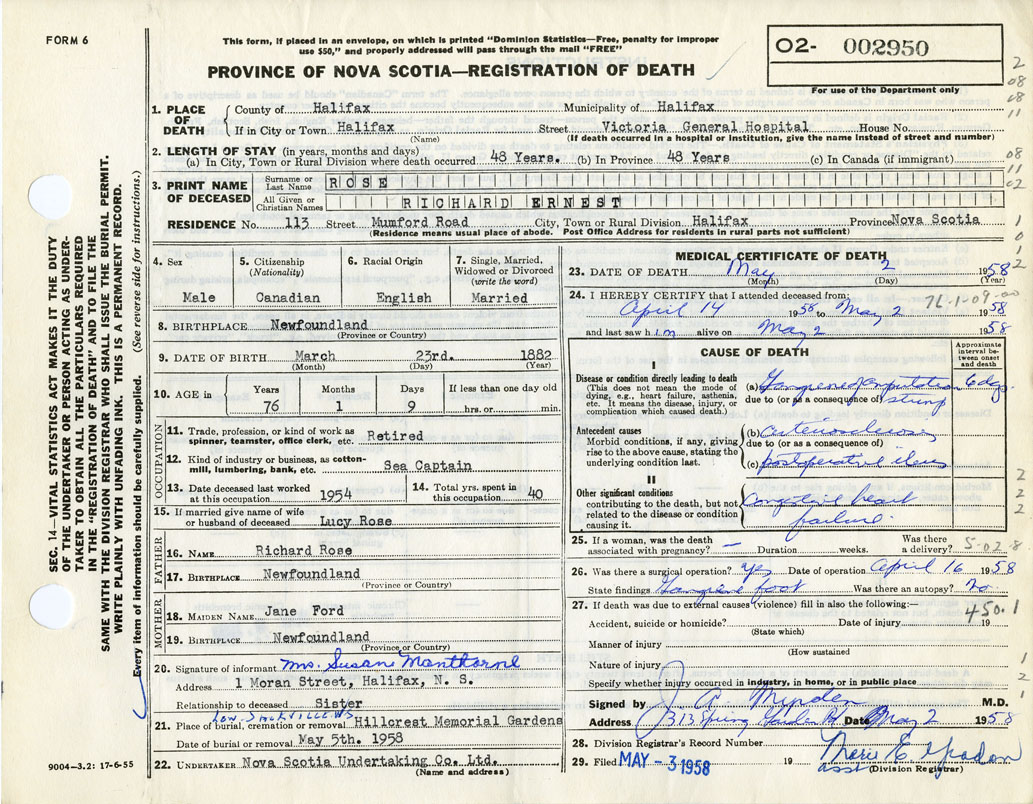 FORM 6
This form, if placed in an envelope, on which is printed "Dominion Statistics—Free, penalty for improper
use $50," and properly addressed will pass through the mail "FREE"
PROVINCE OF NOVA SCOTIA—REGISTRATION OF DEATH
O2- 002950
For use of the Department only
SEC. 14—VITAL STATISTICS ACT MAKES IT THE DUTY
OF THE UNDERTAKER OR PERSON ACTING AS UNDER-
TAKER TO OBTAIN ALL THE PARTICULARS REQUIRED
IN THE "REGISTRATION OF DEATH" AND TO FILE THE
SAME WITH THE DIVISION REGISTRAR WHO SHALL ISSUE THE BURIAL PERMIT.
WRITE PLAINLY WITH UNFADING INK. THIS IS A PERMANENT RECORD.
Every item of information should be carefully supplied. (See reverse side for instructions.)
1. PLACE OF DEATH
County of Halifax Municipality of Halifax
If in City or Town Halifax Street Victoria General Hospital House No.
(Name) (If death occurred in a hospital or institution, give the name instead of street and number)
2. LENGTH OF STAY (in years, months and days)
(a) In City, Town or Rural Division where death occurred 48 Years. (b) In Province 48 Years (c) In Canada (if immigrant)
3. PRINT NAME OF DECEASED
Surname or Last Name ROSE
All Given or Christian Names RICHARD ERNEST
RESIDENCE No. 113 Street Mumford Road City, Town or Rural Division Halifax Province Nova Scotia
(Residence means usual place of abode. Post Office Address for residents in rural parts not sufficient)
4. Sex
Male
5. Citizenship
(Nationality)
Canadian
6. Racial Origin
English
7. Single, Married,
Widowed or Divorced
(write the word)
Married
8. BIRTHPLACE Newfoundland
(Province or Country)
9. DATE OF BIRTH March 23rd. 1882
(Month) (Day) (Year)
10. AGE in
Years Months Days If less than one day old
76 1 9 hrs. or min.
OCCUPATION
11. Trade, profession, or kind of work as
spinner, teamster, office clerk, etc. Retired
12. Kind of industry or business, as cotton-
mill, lumbering, bank, etc. Sea Captain
13. Date deceased last worked
at this occupation 1954
14. Total yrs. spent in
this occupation 40
15. If married give name of wife
or husband of deceased Lucy Rose
FATHER
16. NAME Richard Rose
17. BIRTHPLACE Newfoundland
(Province or Country)
MOTHER
18. MAIDEN NAME Jane Ford
19. BIRTHPLACE Newfoundland
(Province or Country)
20. Signature of informant Mrs. Susan Manthorne
Address 1 Moran Street, Halifax, N. S.
Relationship to deceased Sister
21. Place of burial, cremation or removal Hillcrest Memorial Gardens
Date of burial or removal May 5th. 1958
22. UNDERTAKER Nova Scotia Undertaking Co. Ltd.
(Name and address)
9004—3.2: 17-6-55
MEDICAL CERTIFICATE OF DEATH
23. DATE OF DEATH May 2 1958
(Month) (Day) (Year)
24. I HEREBY CERTIFY that I attended deceased from:
April 14 1958 to May 2 1958
and last saw him alive on May 2 1958
CAUSE OF DEATH
Approximate
interval be-
tween onset
and death
I
Disease or condition directly leading to death
(This does not mean the mode of
dying, e.g., heart failure, asthenia,
etc. It means the disease, injury, or
complication which caused death.)
(a) Gangrene of amputation
due to (or as a consequence of) stump
Antecedent causes
Morbid conditions, if any, giving
rise to the above cause, stating the
underlying condition last.
(b) arteriosclerosis
due to (or as a consequence of)
(c) postoperative ileus
II
Other significant conditions
contributing to the death, but not
related to the disease or condition
causing it.
Congestive heart
failure
25. If a woman, was the death
associated with pregnancy? — Duration weeks. Was there
a delivery? 5-02-8
26. Was there a surgical operation? yes Date of operation April 16 1958
State findings foot Was there an autopsy? no
27. If death was due to external causes (violence) fill in also the following:—
450.1
Accident, suicide or homicide? Date of injury 19
(State which)
Manner of injury
(How sustained
Nature of injury
Specify whether injury occurred in industry, in home, or in public place
Signed by J A Myrden M.D.
Address 313 Spring Garden Rd Date May 2 1958
28. Division Registrar's Record Number
29. Filed MAY - 3 1958 19
(Division Registrar)